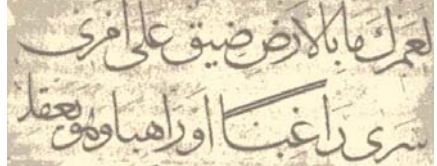 لعمرك ما بالارض ضيق على امرئ
سرى راغبا او راهبا وهو يعقل